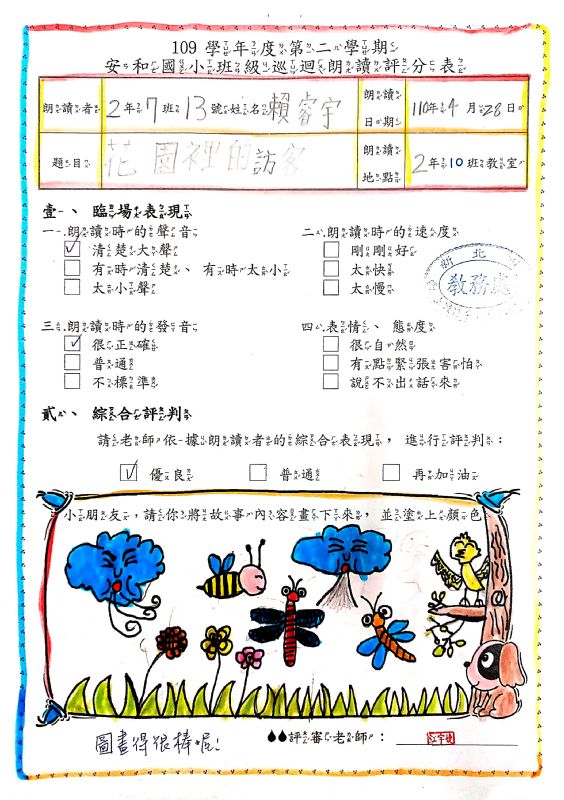 109 學年度第二學期
安和國小班級巡迴朗讀評分表
朗讀者 2年7班13號姓名賴睿宇 朗讀日期 110年4月28日
題目 花園裡的訪客 朗讀地點 2年10班教室
壹、臨場表現
一、朗讀時的聲音
☑ 清楚大聲
□ 有時清楚、有時太小
□ 太小聲
二、朗讀時的速度
□ 剛剛好
□ 太快
□ 太慢
新北市
教務處
三、朗讀時的發音
☑ 很正確
□ 普通
□ 不標準
四、表情、態度
□ 很自然
□ 有點緊張害怕
□ 說不出話來
貳、綜合評判
請老師依據朗讀者的綜合表現,進行評判:
☑ 優良 □ 普通 □ 再加油
小朋友,請你將故事內容畫下來,並塗上顏色
圖畫得很棒喔!
評審老師: